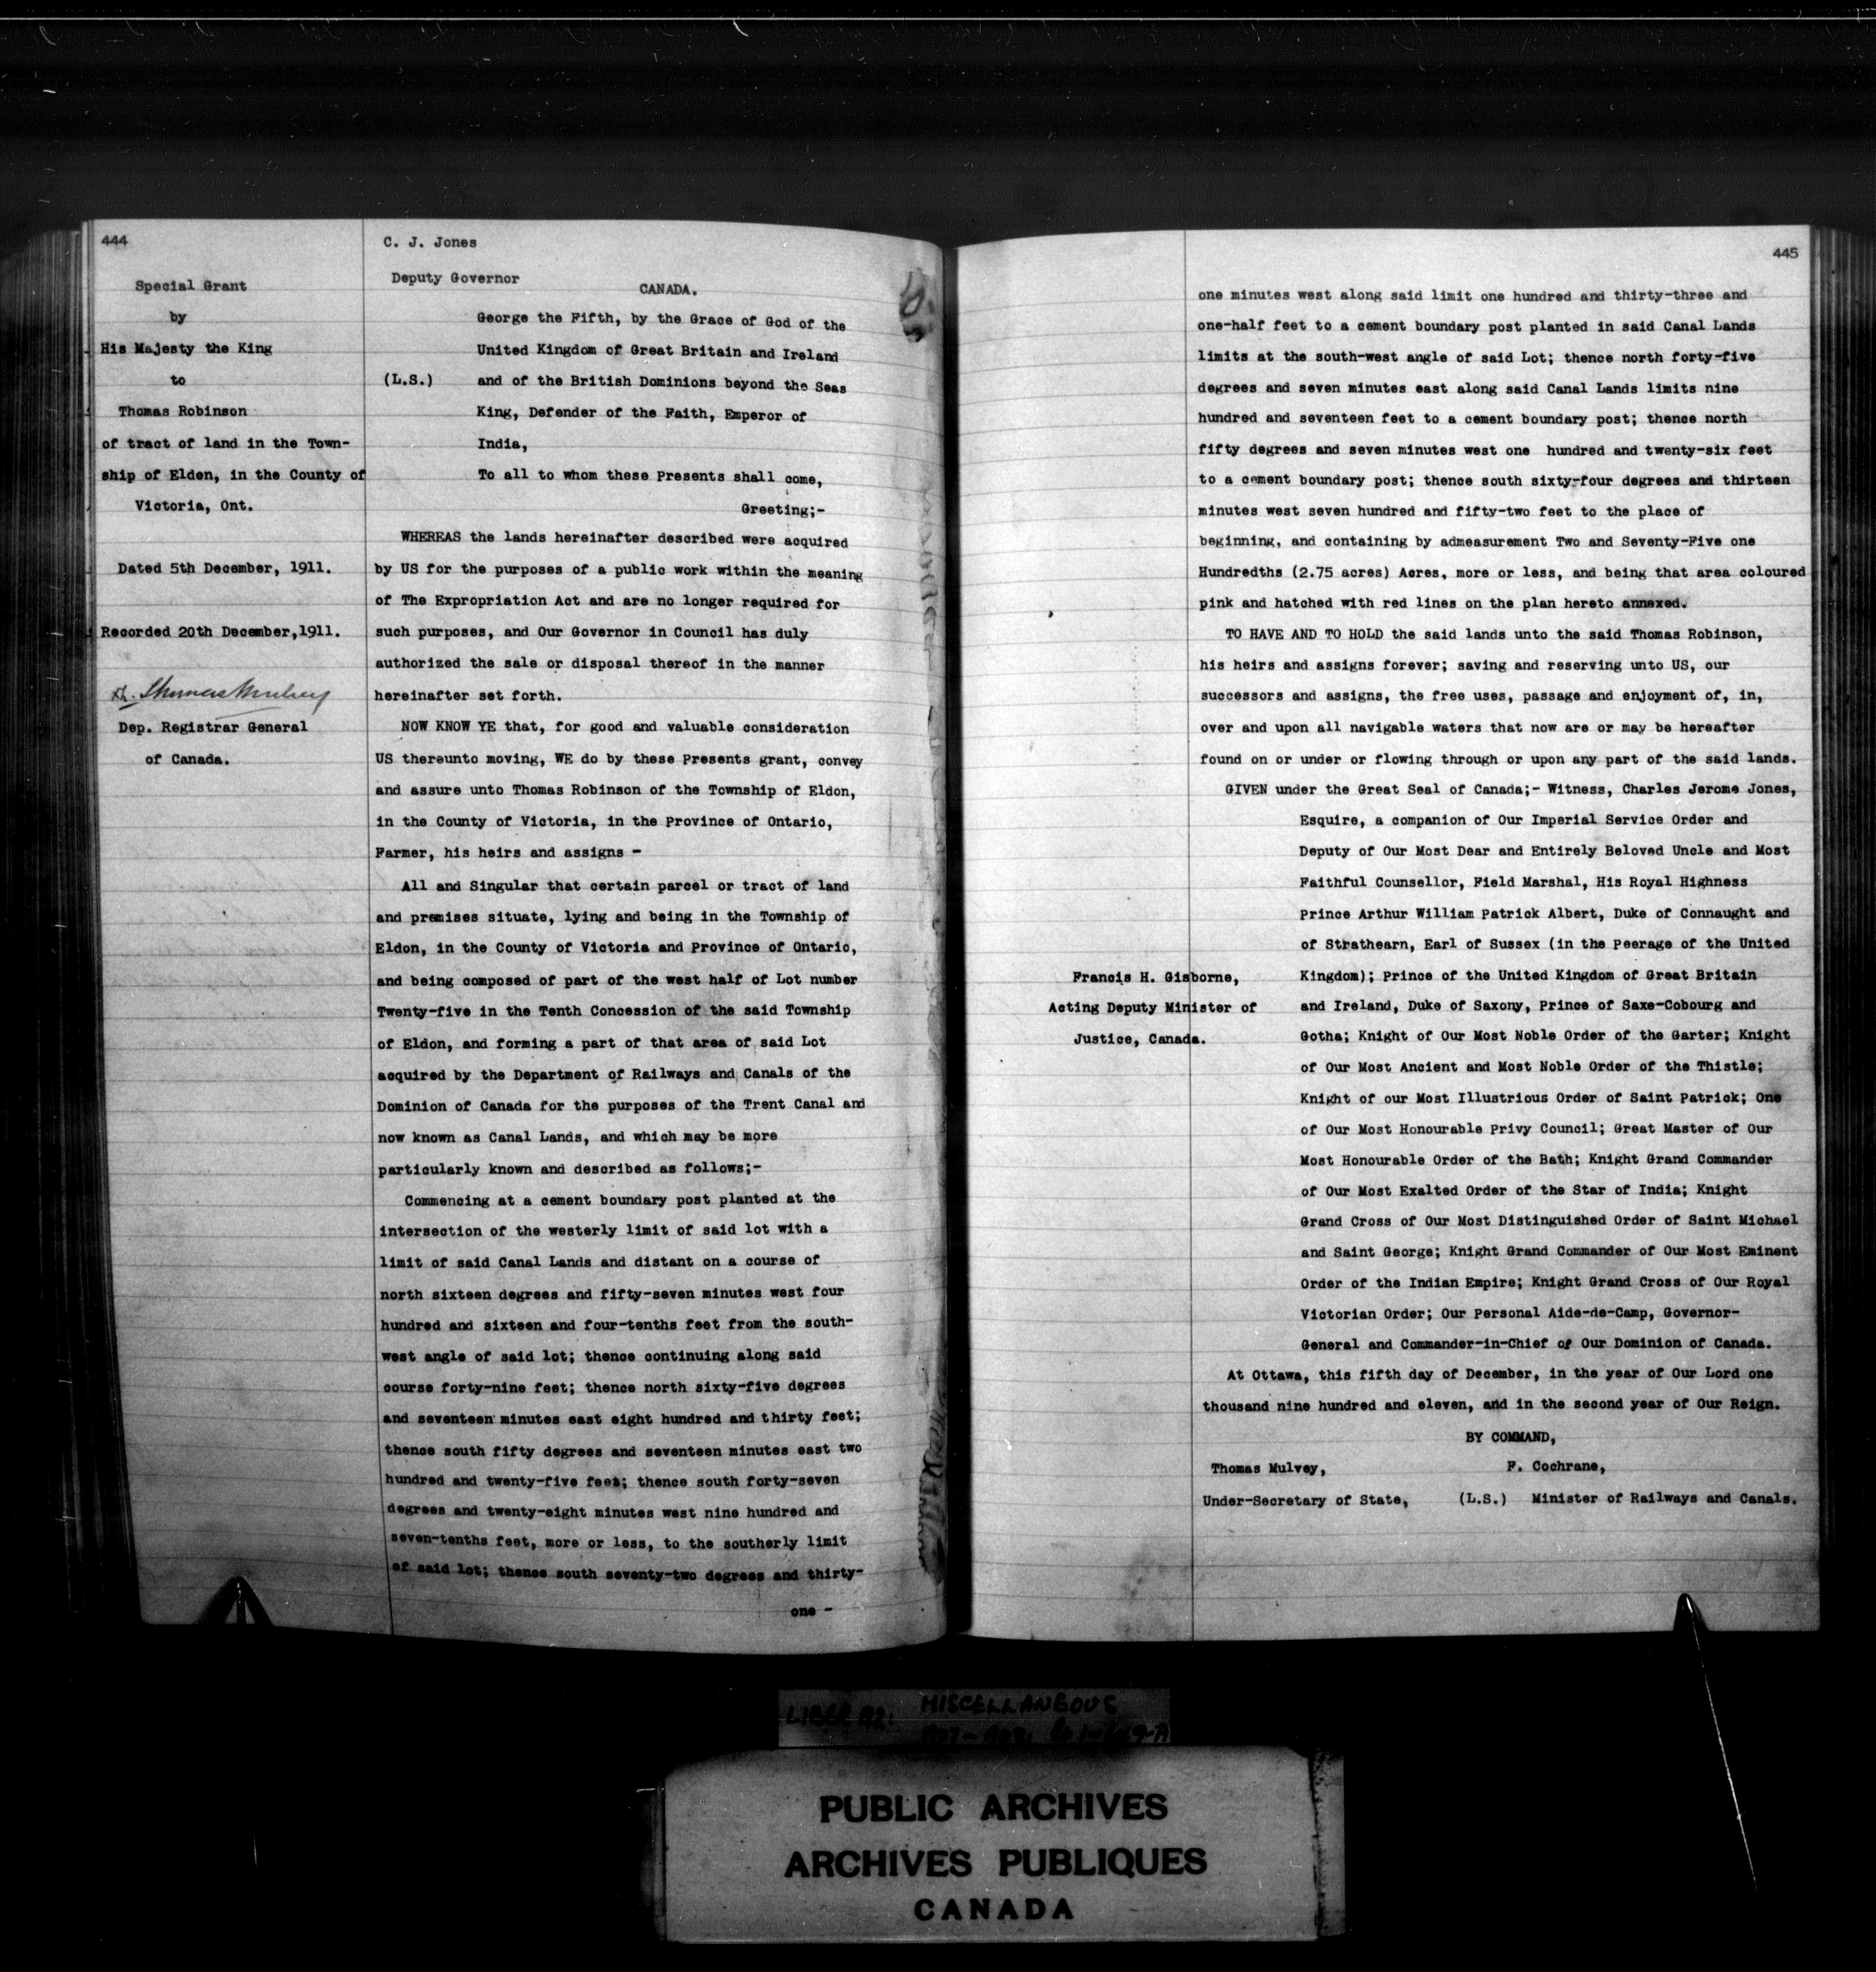 444
Special Grant
by
His Majesty the King
to
Thomas Robinson
of tract of land in the Town-
ship of Elden, in the County of
Victoria, Ont.
Dated 5th December, 1911.
Recorded 20th December,1911.
Thomas Mulvey
Dep. Registrar General
of Canada.
C. J. Jones
Deputy Governor
CANADA.
George the Fifth, by the Grace of God of the
United Kingdom of Great Britain and Ireland
(L.S.) and of the British Dominions beyond the Seas
King, Defender of the Faith, Emperor of
India,
To all to whom these Presents shall come,
Greeting;-
WHEREAS the lands hereinafter described were acquired
by US for the purposes of a public work within the meaning
of The Expropriation Act and are no longer required for
such purposes, and Our Governor in Council has duly
authorized the sale or disposal thereof in the manner
hereinafter set forth.
NOW KNOW YE that, for good and valuable consideration
US thereunto moving, WE do by these Presents grant, convey
and assure unto Thomas Robinson of the Township of Eldon,
in the County of Victoria, in the Province of Ontario,
Farmer, his heirs and assigns -
All and Singular that certain parcel or tract of land
and premises situate, lying and being in the Township of
Eldon, in the County of Victoria and Province of Ontario,
and being composed of part of the west half of Lot number
Twenty-five in the Tenth Concession of the said Township
of Eldon, and forming a part of that area of said Lot
acquired by the Department of Railways and Canals of the
Dominion of Canada for the purposes of the Trent Canal and
now known as Canal Lands, and which may be more
particularly known and described as follows;-
Commencing at a cement boundary post planted at the
intersection of the westerly limit of said lot with a
limit of said Canal Lands and distant on a course of
north sixteen degrees and fifty-seven minutes west four
hundred and sixteen and four-tenths feet from the south-
west angle of said lot; thence continuing along said
course forty-nine feet; thence north sixty-five degrees
and seventeen minutes east eight hundred and thirty feet;
thence south fifty degrees and seventeen minutes east two
hundred and twenty-five feet; thence south forty-seven
degrees and twenty-eight minutes west nine hundred and
seven-tenths feet, more or less, to the southerly limit
of said lot; thence south seventy-two degrees and thirty-
one -
445
one minutes west along said limit one hundred and thirty-three and
one-half feet to a cement boundary post planted in said Canal Lands
limits at the south-west angle of said Lot; thence north forty-five
degrees and seven minutes east along said Canal Lands limits nine
hundred and seventeen feet to a cement boundary post; thence north
fifty degrees and seven minutes west one hundred and twenty-six feet
to a cement boundary post; thence south sixty-four degrees and thirteen
minutes west seven hundred and fifty-two feet to the place of
beginning, and containing by admeasurement Two and Seventy-Five one
Hundredths (2.75 acres) Acres, more or less, and being that area coloured
pink and hatched with red lines on the plan hereto annexed.
TO HAVE AND TO HOLD the said lands unto the said Thomas Robinson,
his heirs and assigns forever; saving and reserving unto US, our
successors and assigns, the free uses, passage and enjoyment of, in,
over and upon all navigable waters that now are or may be hereafter
found on or under or flowing through or upon any part of the said lands.
GIVEN under the Great Seal of Canada;- Witness, Charles Jerome Jones,
Esquire, a companion of Our Imperial Service Order and
Deputy of Our Most Dear and Entirely Beloved Uncle and Most
Faithful Counsellor, Field Marshal, His Royal Highness
Prince Arthur William Patrick Albert, Duke of Connaught and
of Strathearn, Earl of Sussex (in the Peerage of the United
Francis H. Gisborne, Kingdom); Prince of the United Kingdom of Great Britain
Acting Deputy Minister of and Ireland, Duke of Saxony, Prince of Saxe-Cobourg and
Justice, Canada. Gotha; Knight of Our Most Noble Order of the Garter; Knight
of Our Most Ancient and Most Noble Order of the Thistle;
Knight of our Most Illustrious Order of Saint Patrick; One
of Our Most Honourable Privy Council; Great Master of Our
Most Honourable Order of the Bath; Knight Grand Commander
of Our Most Exalted Order of the Star of India; Knight
Grand Cross of Our Most Distinguished Order of Saint Michael
and Saint George; Knight Grand Commander of Our Most Eminent
Order of the Indian Empire; Knight Grand Cross of Our Royal
Victorian Order; Our Personal Aide-de-Camp, Governor-
General and Commander-in-Chief of Our Dominion of Canada.
At Ottawa, this fifth day of December, in the year of Our Lord one
thousand nine hundred and eleven, and in the second year of Our Reign.
BY COMMAND,
Thomas Mulvey, F. Cochrane,
Under-Secretary of State, (L.S.) Minister of Railways and Canals.
LIBER
MISCELLANEOUS
PUBLIC ARCHIVES
ARCHIVES PUBLIQUES
CANADA